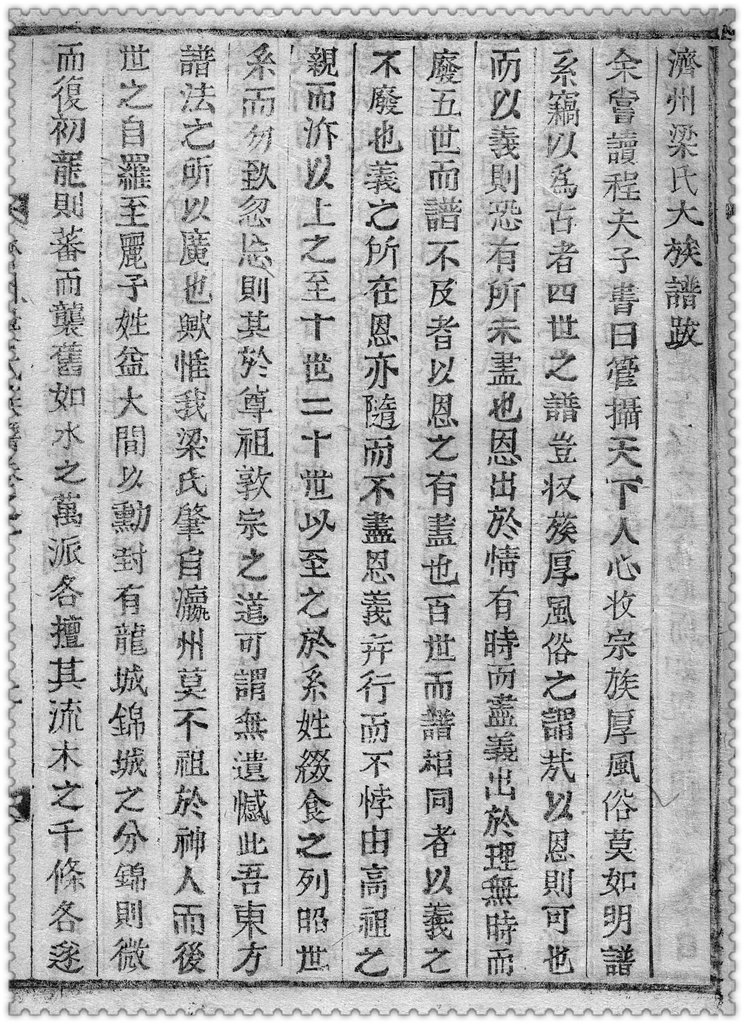 濟州梁氏大族譜跋
余嘗讀程夫子書曰管攝天下人心收宗族厚風俗莫如明譜
系竊以爲古者四世之譜豈收族厚風俗之謂㢤以恩則可也
而以義則恐有所未盡也恩出於情有時而盡義出於理無時而
廢五世而譜不及者以恩之有盡也百世而譜相同者以義之
不廢也義之所在恩亦隨而不盡恩義幷行而不悖由高祖之
親而泝以上之至十世二十世以至之於系姓綴食之列昭世
系而勿致忽忘則其於尊祖敦宗之道可謂無遺憾此吾東方
譜法之所以廣也歟惟我梁氏肇自瀛州莫不祖於神人而後
世之自羅至麗子姓益大間以勳封有龍城錦城之分錦則微
而復初龍則蕃而襲舊如水之萬派各擅其流木之千條各遂